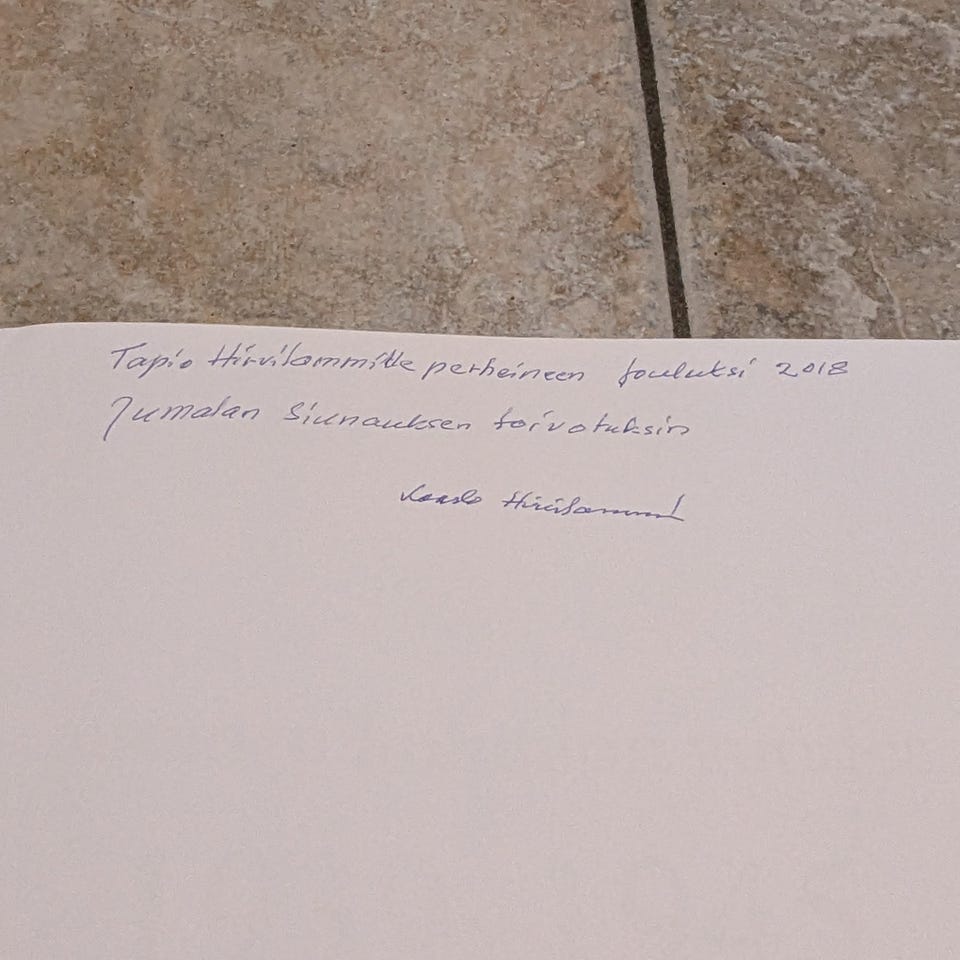 Tapio Hirvilammille perheineen Jouluksi 2018
Jumalan Siunauksen toivotuksin
Kaarlo Hirvilammi